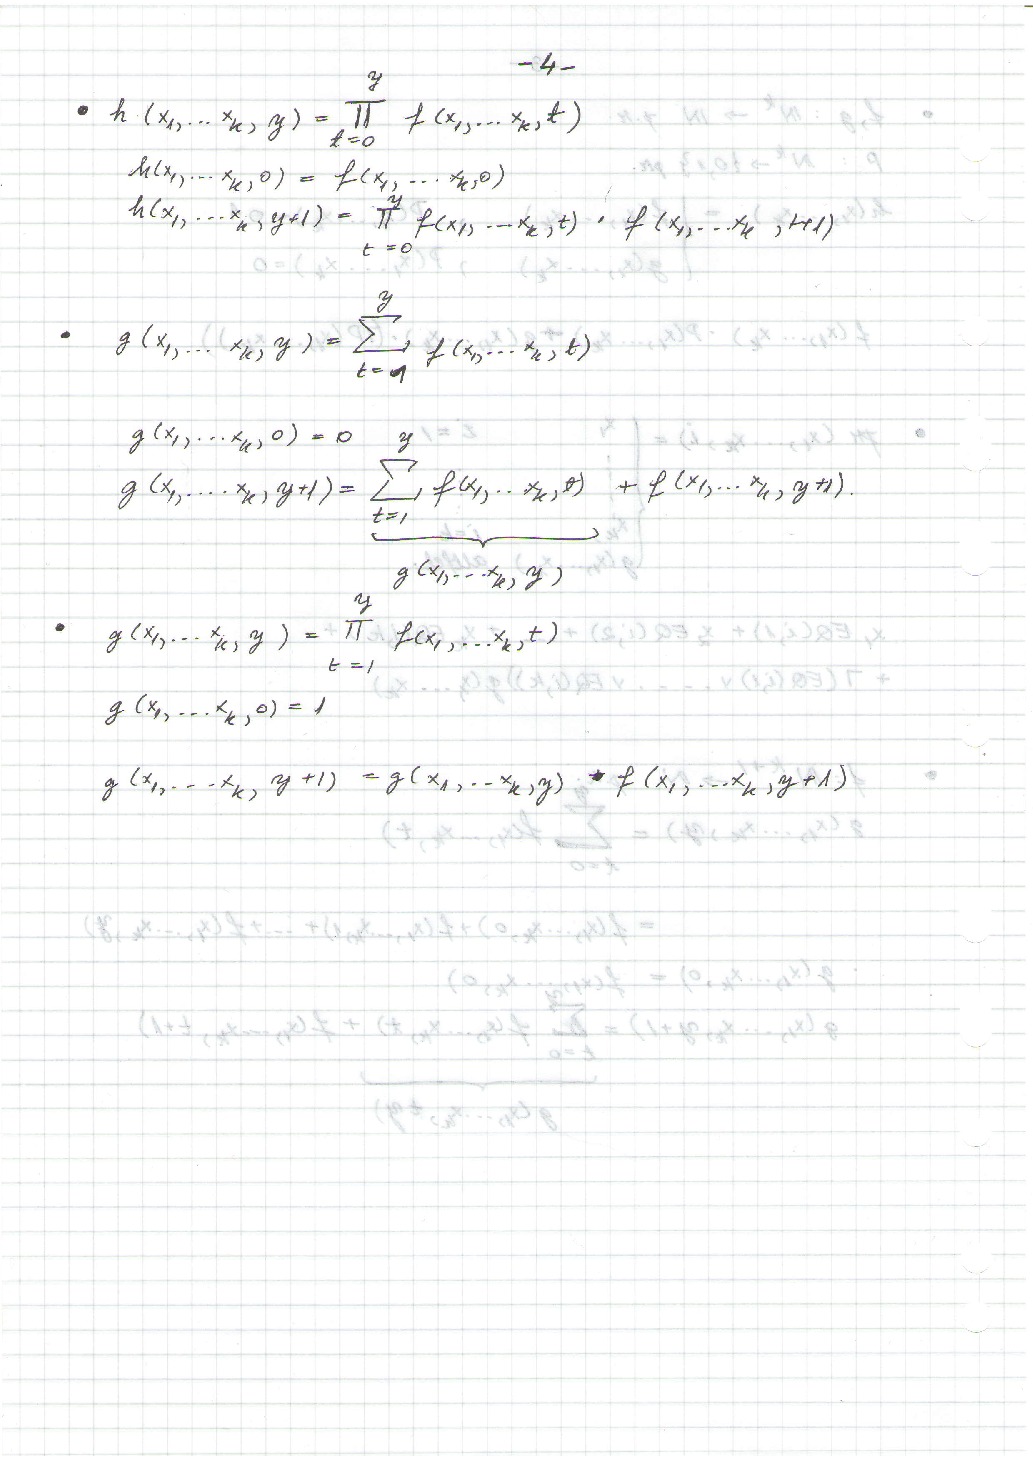 -4-
• h (x₁, ... xₖ, y) = ∏_{t=0}^{y} f (x₁, ... xₖ, t)
h(x₁, ... xₖ, 0) = f(x₁, ... xₖ, 0)
h(x₁, ... xₖ, y+1) = ∏_{t=0}^{y} f(x₁, ... xₖ, t) · f (x₁, ... xₖ, t+1)
• g (x₁, ... xₖ, y) = ∑_{t=1}^{y} f (x₁, ... xₖ, t)
g (x₁, ... xₖ, 0) = 0
g (x₁, .... xₖ, y+1) = ∑_{t=1}^{y} f(x₁, ... xₖ, t) + f (x₁, ... xₖ, y+1).
g (x₁, ... xₖ, y)
• g (x₁, ... xₖ, y) = ∏_{t=1}^{y} f(x₁, ... xₖ, t)
g (x₁, ... xₖ, 0) = 1
g (x₁, ... xₖ, y+1) = g (x₁, ... xₖ, y) · f (x₁, ... xₖ, y+1)